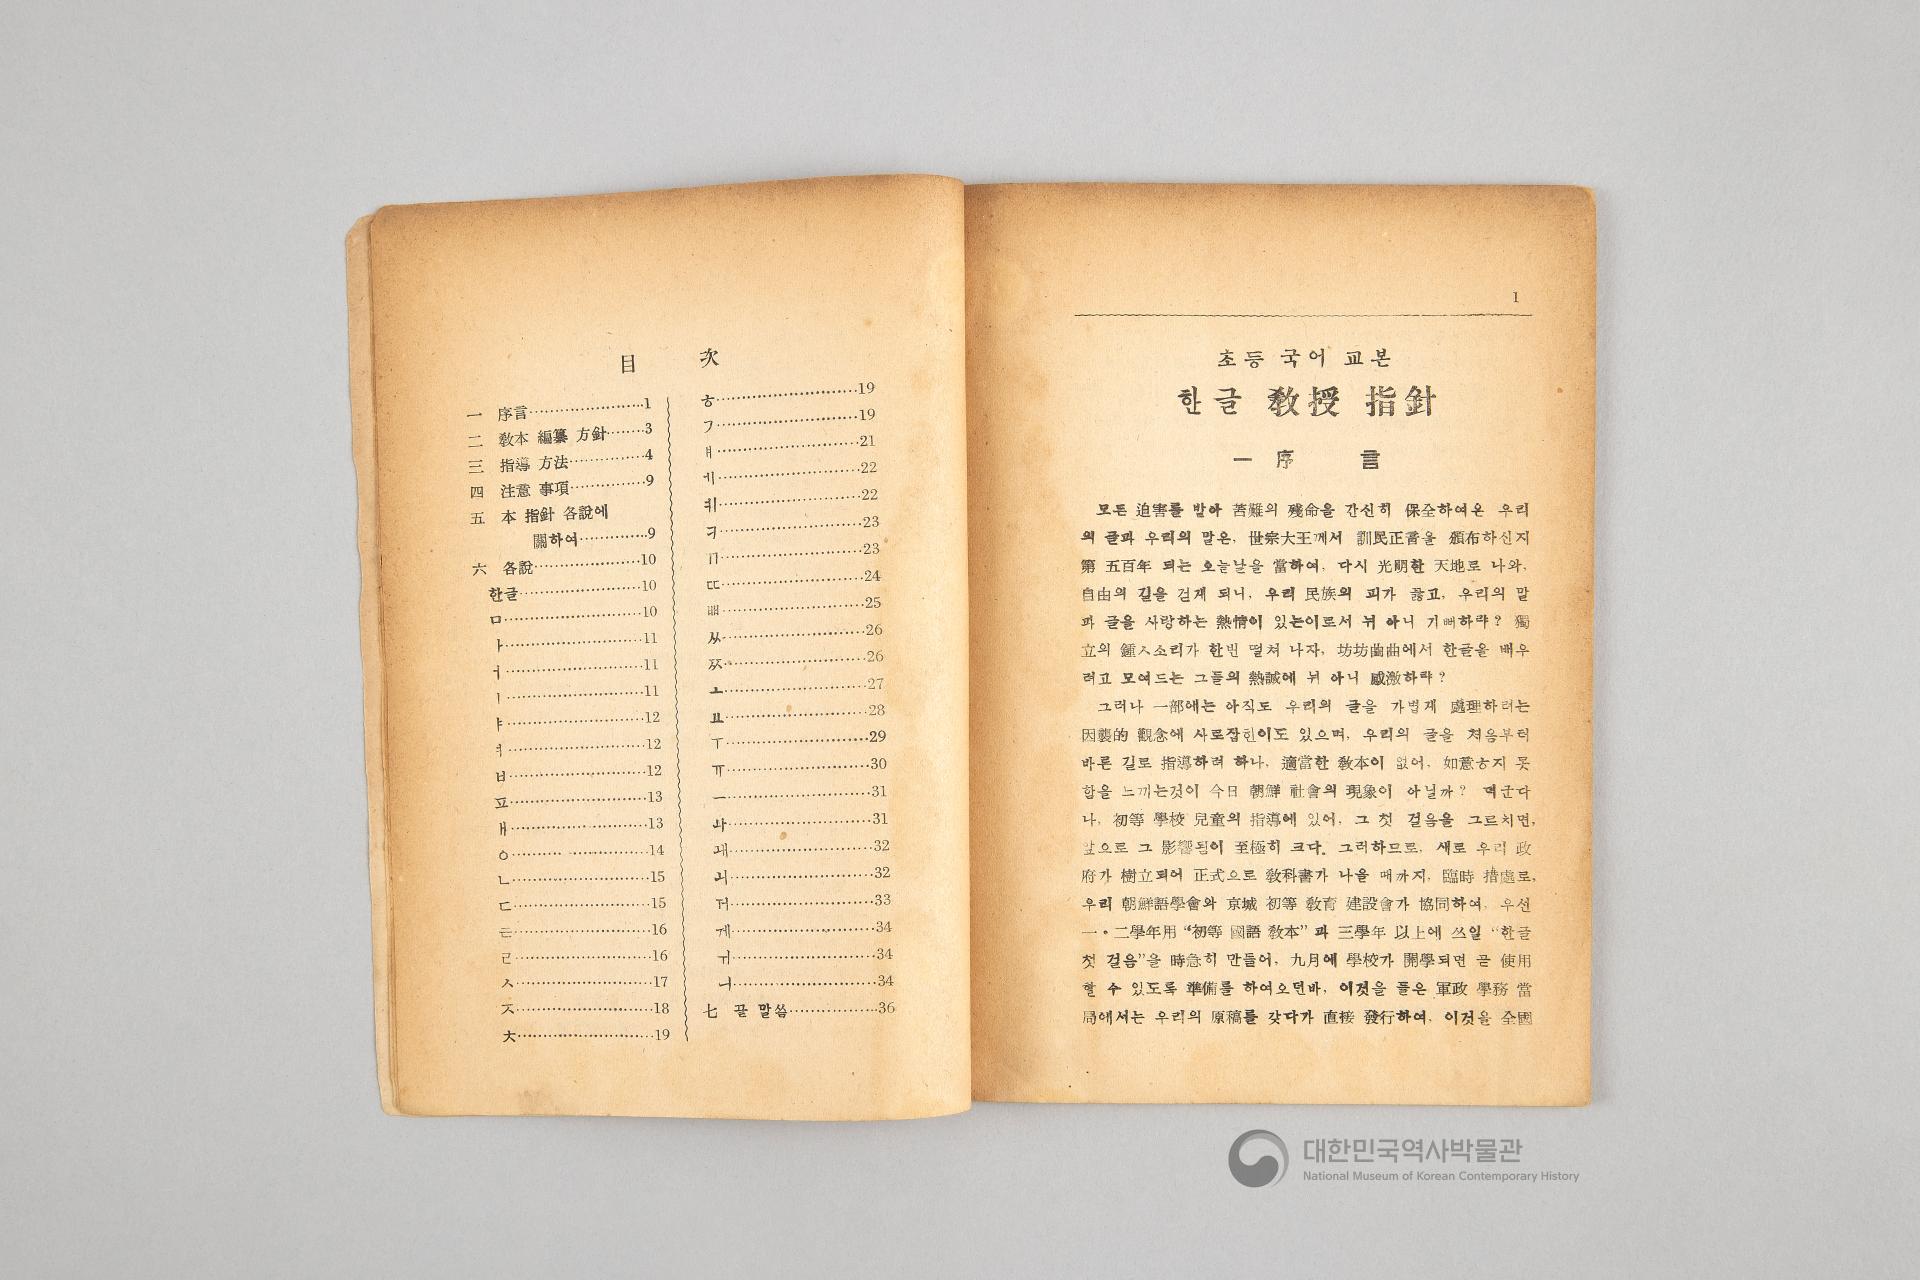 目 次
一 序言……………………1
二 敎本 編纂 方針………3
三 指導 方法……………4
四 注意 事項……………9
五 本 指針 各說에
關하여……………9
六 各說…………………10
한글……………………10
ㅁ………………………10
ㅏ………………………11
ㅓ………………………11
ㅣ………………………11
ㅑ………………………12
ㅕ………………………12
ㅂ………………………12
ㅍ………………………13
ㅐ………………………13
ㅇ………………………14
ㄴ………………………15
ㄷ………………………15
ㅌ………………………16
ㄹ………………………16
ㅅ………………………17
ㅈ………………………18
ㅊ………………………19
ㅎ………………………19
ㄱ………………………19
ㅒ………………………21
ㅔ………………………22
ㅖ………………………22
ㅋ………………………23
ㄲ………………………23
ㄸ………………………24
ㅃ………………………25
ㅆ………………………26
ㅉ………………………26
ㅗ………………………27
ㅛ………………………28
ㅜ………………………29
ㅠ………………………30
ㅡ………………………31
ㅘ………………………31
ㅙ………………………32
ㅚ………………………32
ㅝ………………………33
ㅞ………………………34
ㅟ………………………34
ㅢ………………………34
七 끝 말씀……………36
1
초등 국어 교본
한글 敎授 指針
一 序 言
모든 迫害를 받아 苦難의 殘命을 간신히 保全하여온 우리
의 글과 우리의 말은, 世宗大王께서 訓民正音을 頒布하신지
第 五百年 되는 오늘날을 當하여, 다시 光明한 天地로 나와,
自由의 길을 걷게 되니, 우리 民族의 피가 끓고, 우리의 말
과 글을 사랑하는 熱情이 있는이로서 뉘 아니 기뻐하랴? 獨
立의 鍾ㅅ소리가 한번 떨쳐 나자, 坊坊曲曲에서 한글을 배우
려고 모여드는 그들의 熱誠에 뉘 아니 感激하랴?
그러나 一部에는 아직도 우리의 글을 가볍게 處理하려는
因襲的 觀念에 사로잡힌이도 있으며, 우리의 글을 처음부터
바른 길로 指導하려 하나, 適當한 敎本이 없어, 如意ㅎ지 못
함을 느끼는것이 今日 朝鮮 社會의 現象이 아닐까? 더군다
나, 初等 學校 兒童의 指導에 있어, 그 첫 걸음을 그르치면,
앞으로 그 影響됨이 至極히 크다. 그러하므로, 새로 우리 政
府가 樹立되어 正式으로 敎科書가 나올 때까지, 臨時 措處로,
우리 朝鮮語學會와 京城 初等 敎育 建設會가 協同하여, 우선
一・二學年用 “初等 國語 敎本”과 三學年 以上에 쓰일 “한글
첫 걸음”을 時急히 만들어, 九月에 學校가 開學되면 곧 使用
할 수 있도록 準備를 하여오던바, 이것을 들은 軍政 學務 當
局에서는 우리의 原稿를 갖다가 直接 發行하여, 이것을 全國
대한민국역사박물관
National Museum of Korean Contemporary History